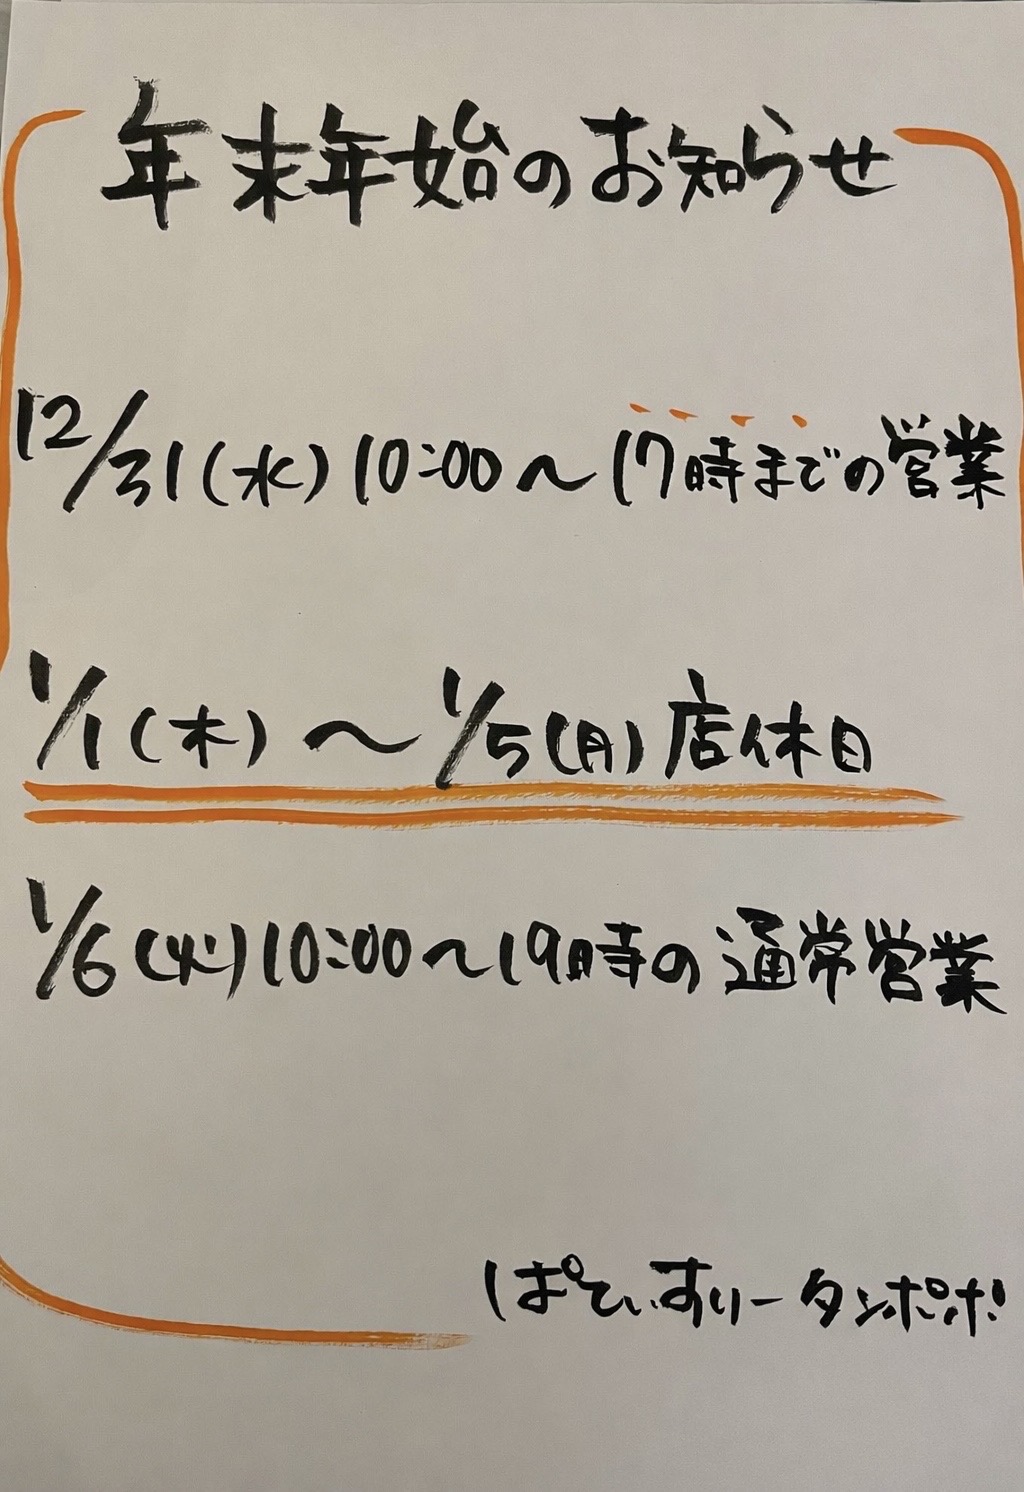 年末年始のお知らせ
12/31(水)10:00〜17時までの営業
1/1(木)〜1/5(月)店休日
1/6(火)10:00〜19時の通常営業
ぱてぃすりータンポポ